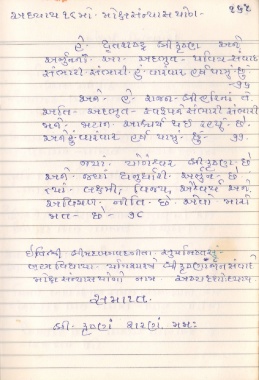 અધ્યાય ૧૮ મો. મોક્ષસંન્યાસ યોગ-
હે. ધૃતરાષ્ટ્ર શ્રી કૃષ્ણ અને
અર્જુનનો આ અદભૂત પવિત્ર સંવાદ
સંભારી સંભારી હું વારંવાર હર્ષ પામું છું.
- ૭૬
અને હે રાજન શ્રી હરિના તે
અતિ અદભૂત સ્વરૂપને સંભારી સંભારી
મને મહાન આશ્ચર્ય થઈ રહ્યું છે.
અને હું વારંવાર હર્ષ પામું છું - ૭૭.
જ્યાં યોગેશ્વર શ્રી કૃષ્ણ છે
અને જ્યાં ધનુર્ધારી અર્જુન છે
ત્યાં લક્ષ્મી, વિજય, ઐશ્વર્ય અને
અવિચળ નીતિ છે. એવો મારો
મત - છે - ૭૮
ઈતિશ્રી શ્રીમદભગવદગીતા
બ્રહ્મવિદ્યાયાં યોગશાસ્ત્રે શ્રી કૃષ્ણાર્જુન સંવાદે
મોક્ષસંન્યાસયોગો નામ
સમાપ્ત.
શ્રી. કૃષ્ણ શરણં. મમઃ